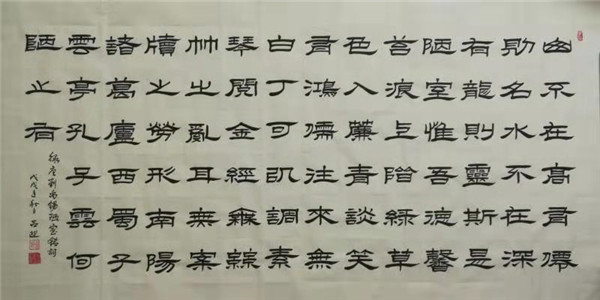 山不在高有僊
則名水不在深
有龍則靈斯是
陋室惟吾德馨
苔痕上階綠草
色入簾青談笑
有鴻儒往來無
白丁可以調素
琴閱金經無絲
竹之亂耳無案
牘之勞形南陽
諸葛廬西蜀子
雲亭孔子雲何
陋之有
錄唐劉禹錫陋室銘
戊戌年秋